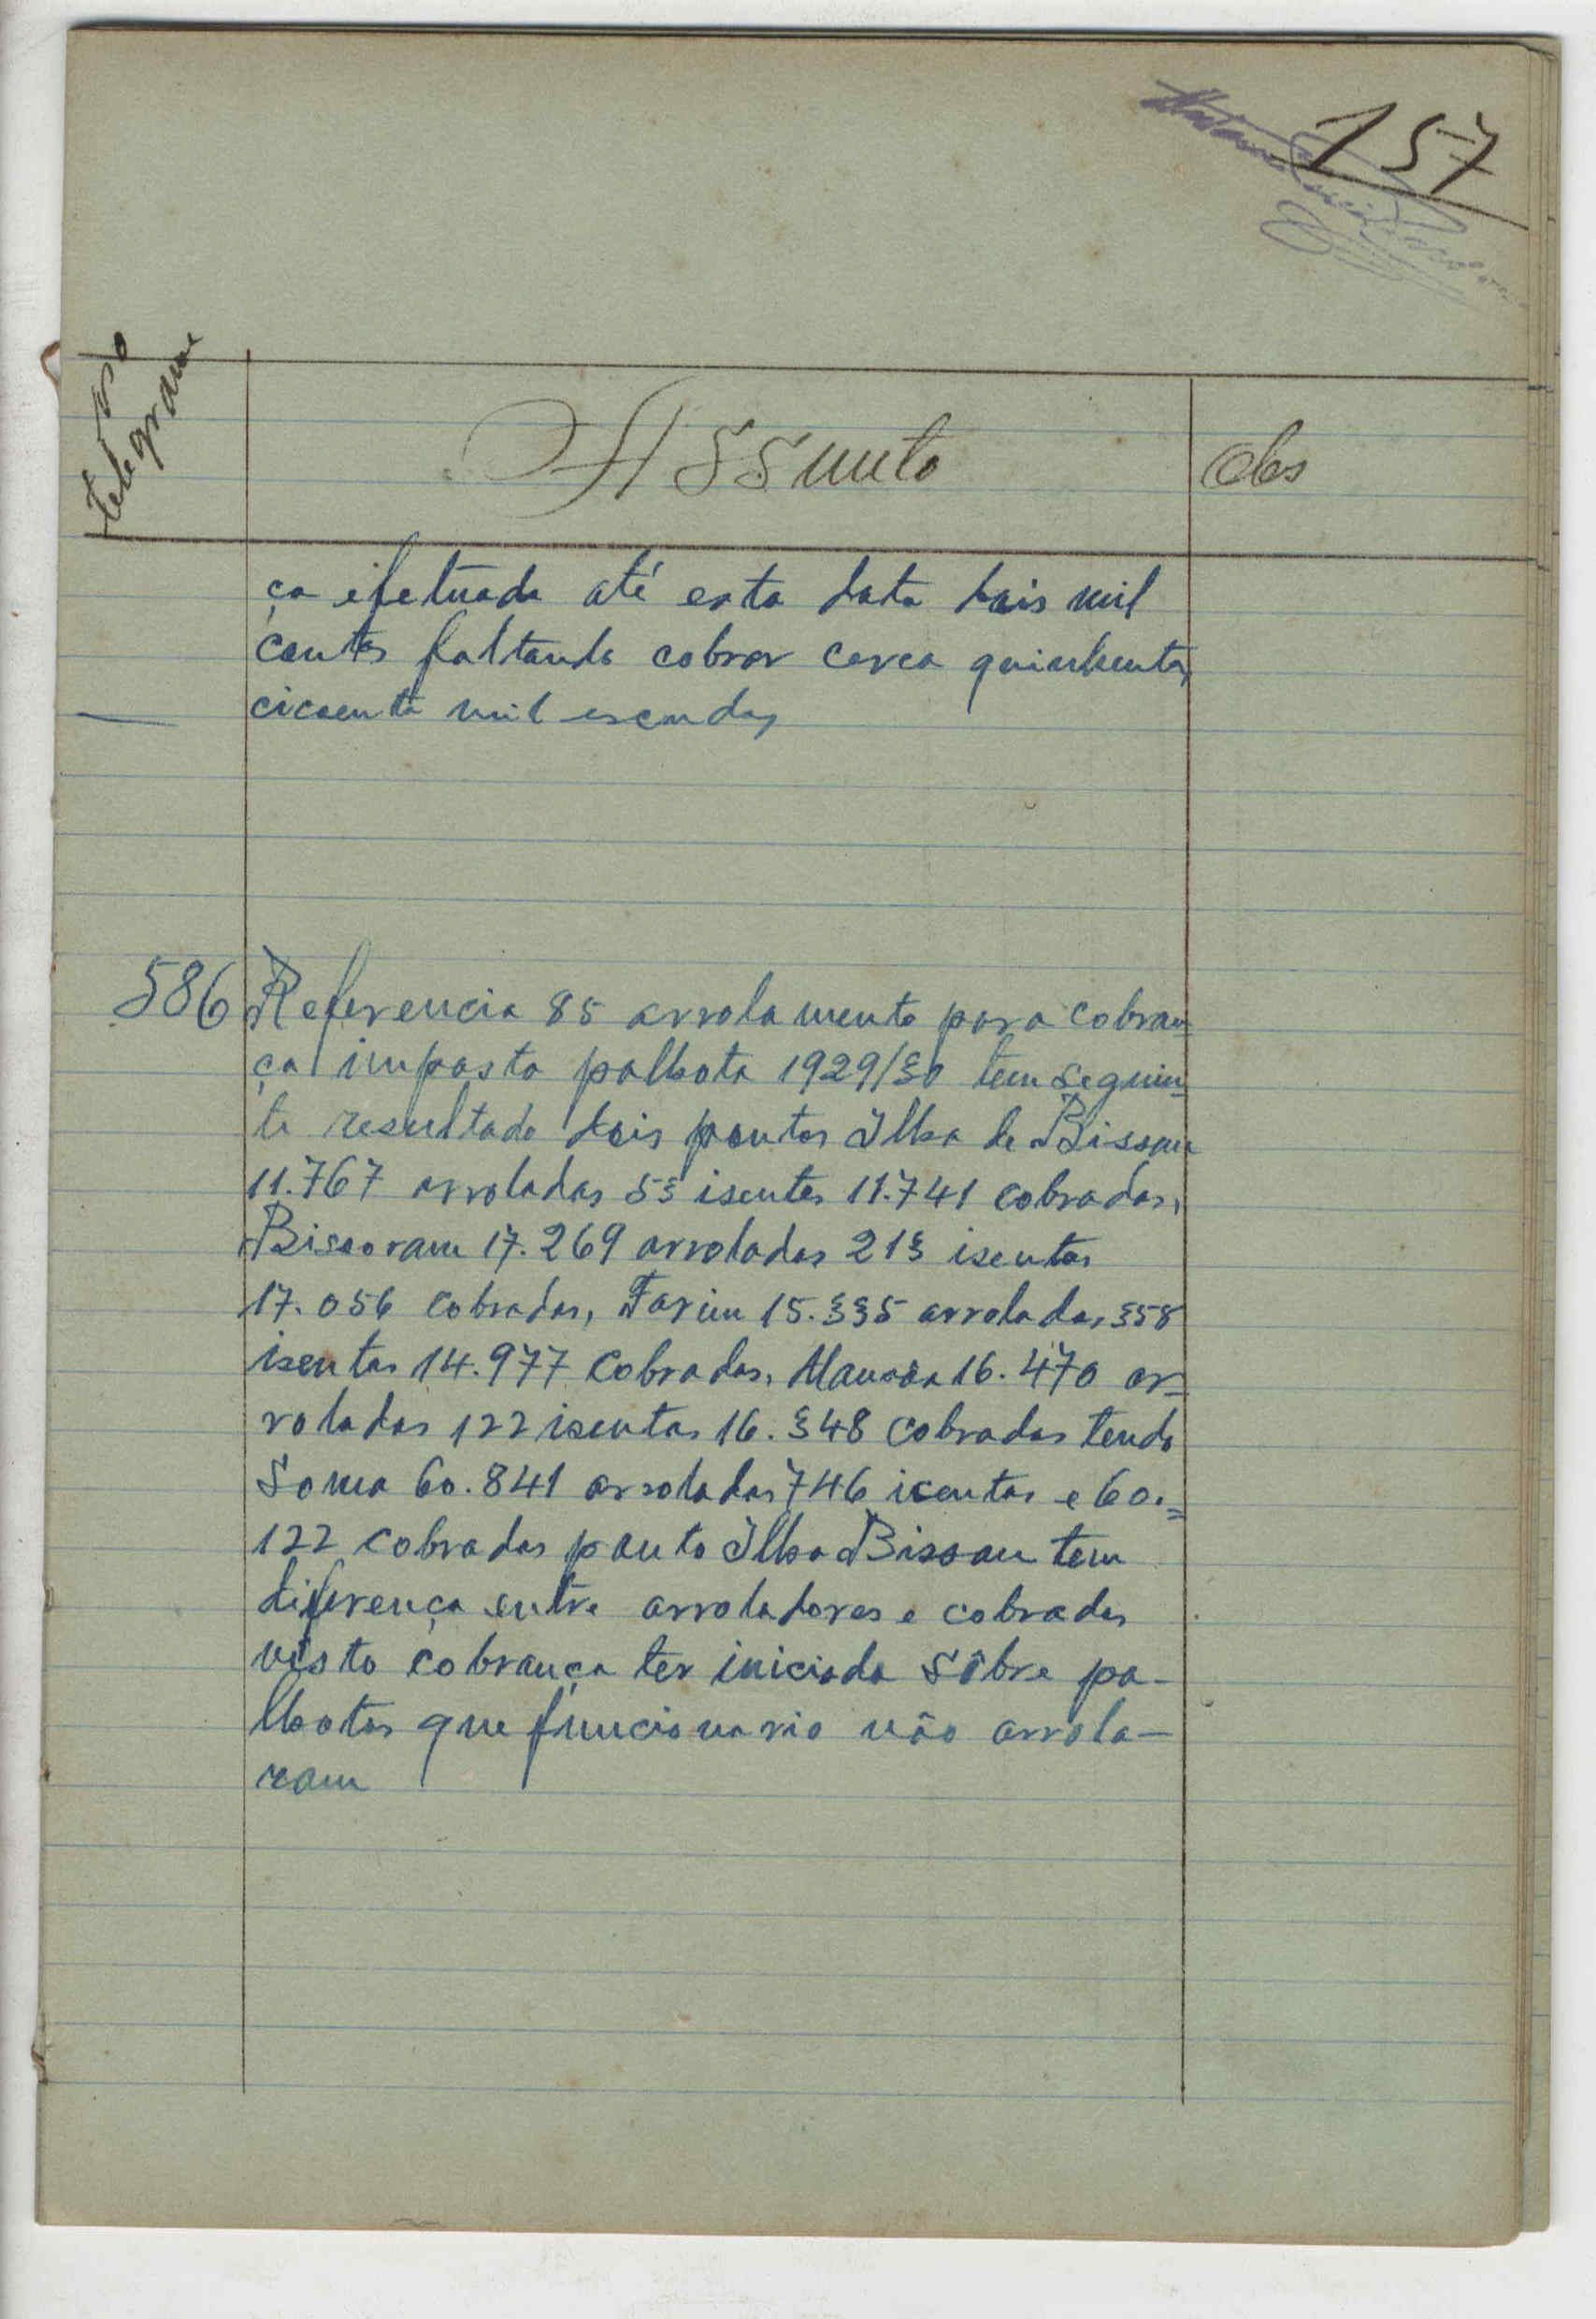 157
Nº
telegrama
Assunto
Obs
ça efetuada até esta data dois mil
contos faltando cobrar cerca quinhentos
cicoenta mil escudos
586 Referencia 85 arrolamento para cobran=
ça imposto palhota 1929/30 tem seguin=
te resultado dois pontos Ilha de Bissau
11.767 arroladas 53 isentas 11.741 cobradas,
Bissoram 17.269 arroladas 213 isentas
17.056 cobradas, Farim 15.335 arroladas 358
isentas 14.977 cobradas, Mansôa 16.470 ar=
roladas 122 isentas 16.348 cobradas tendo
soma 60.841 arroladas 746 isentas e 60.=
122 cobradas ponto Ilha Bissau tem
diferença entre arroladores e cobradas
visto cobrança ter iniciada sôbre pa-
lhotas que funcionario não arrola-
ram